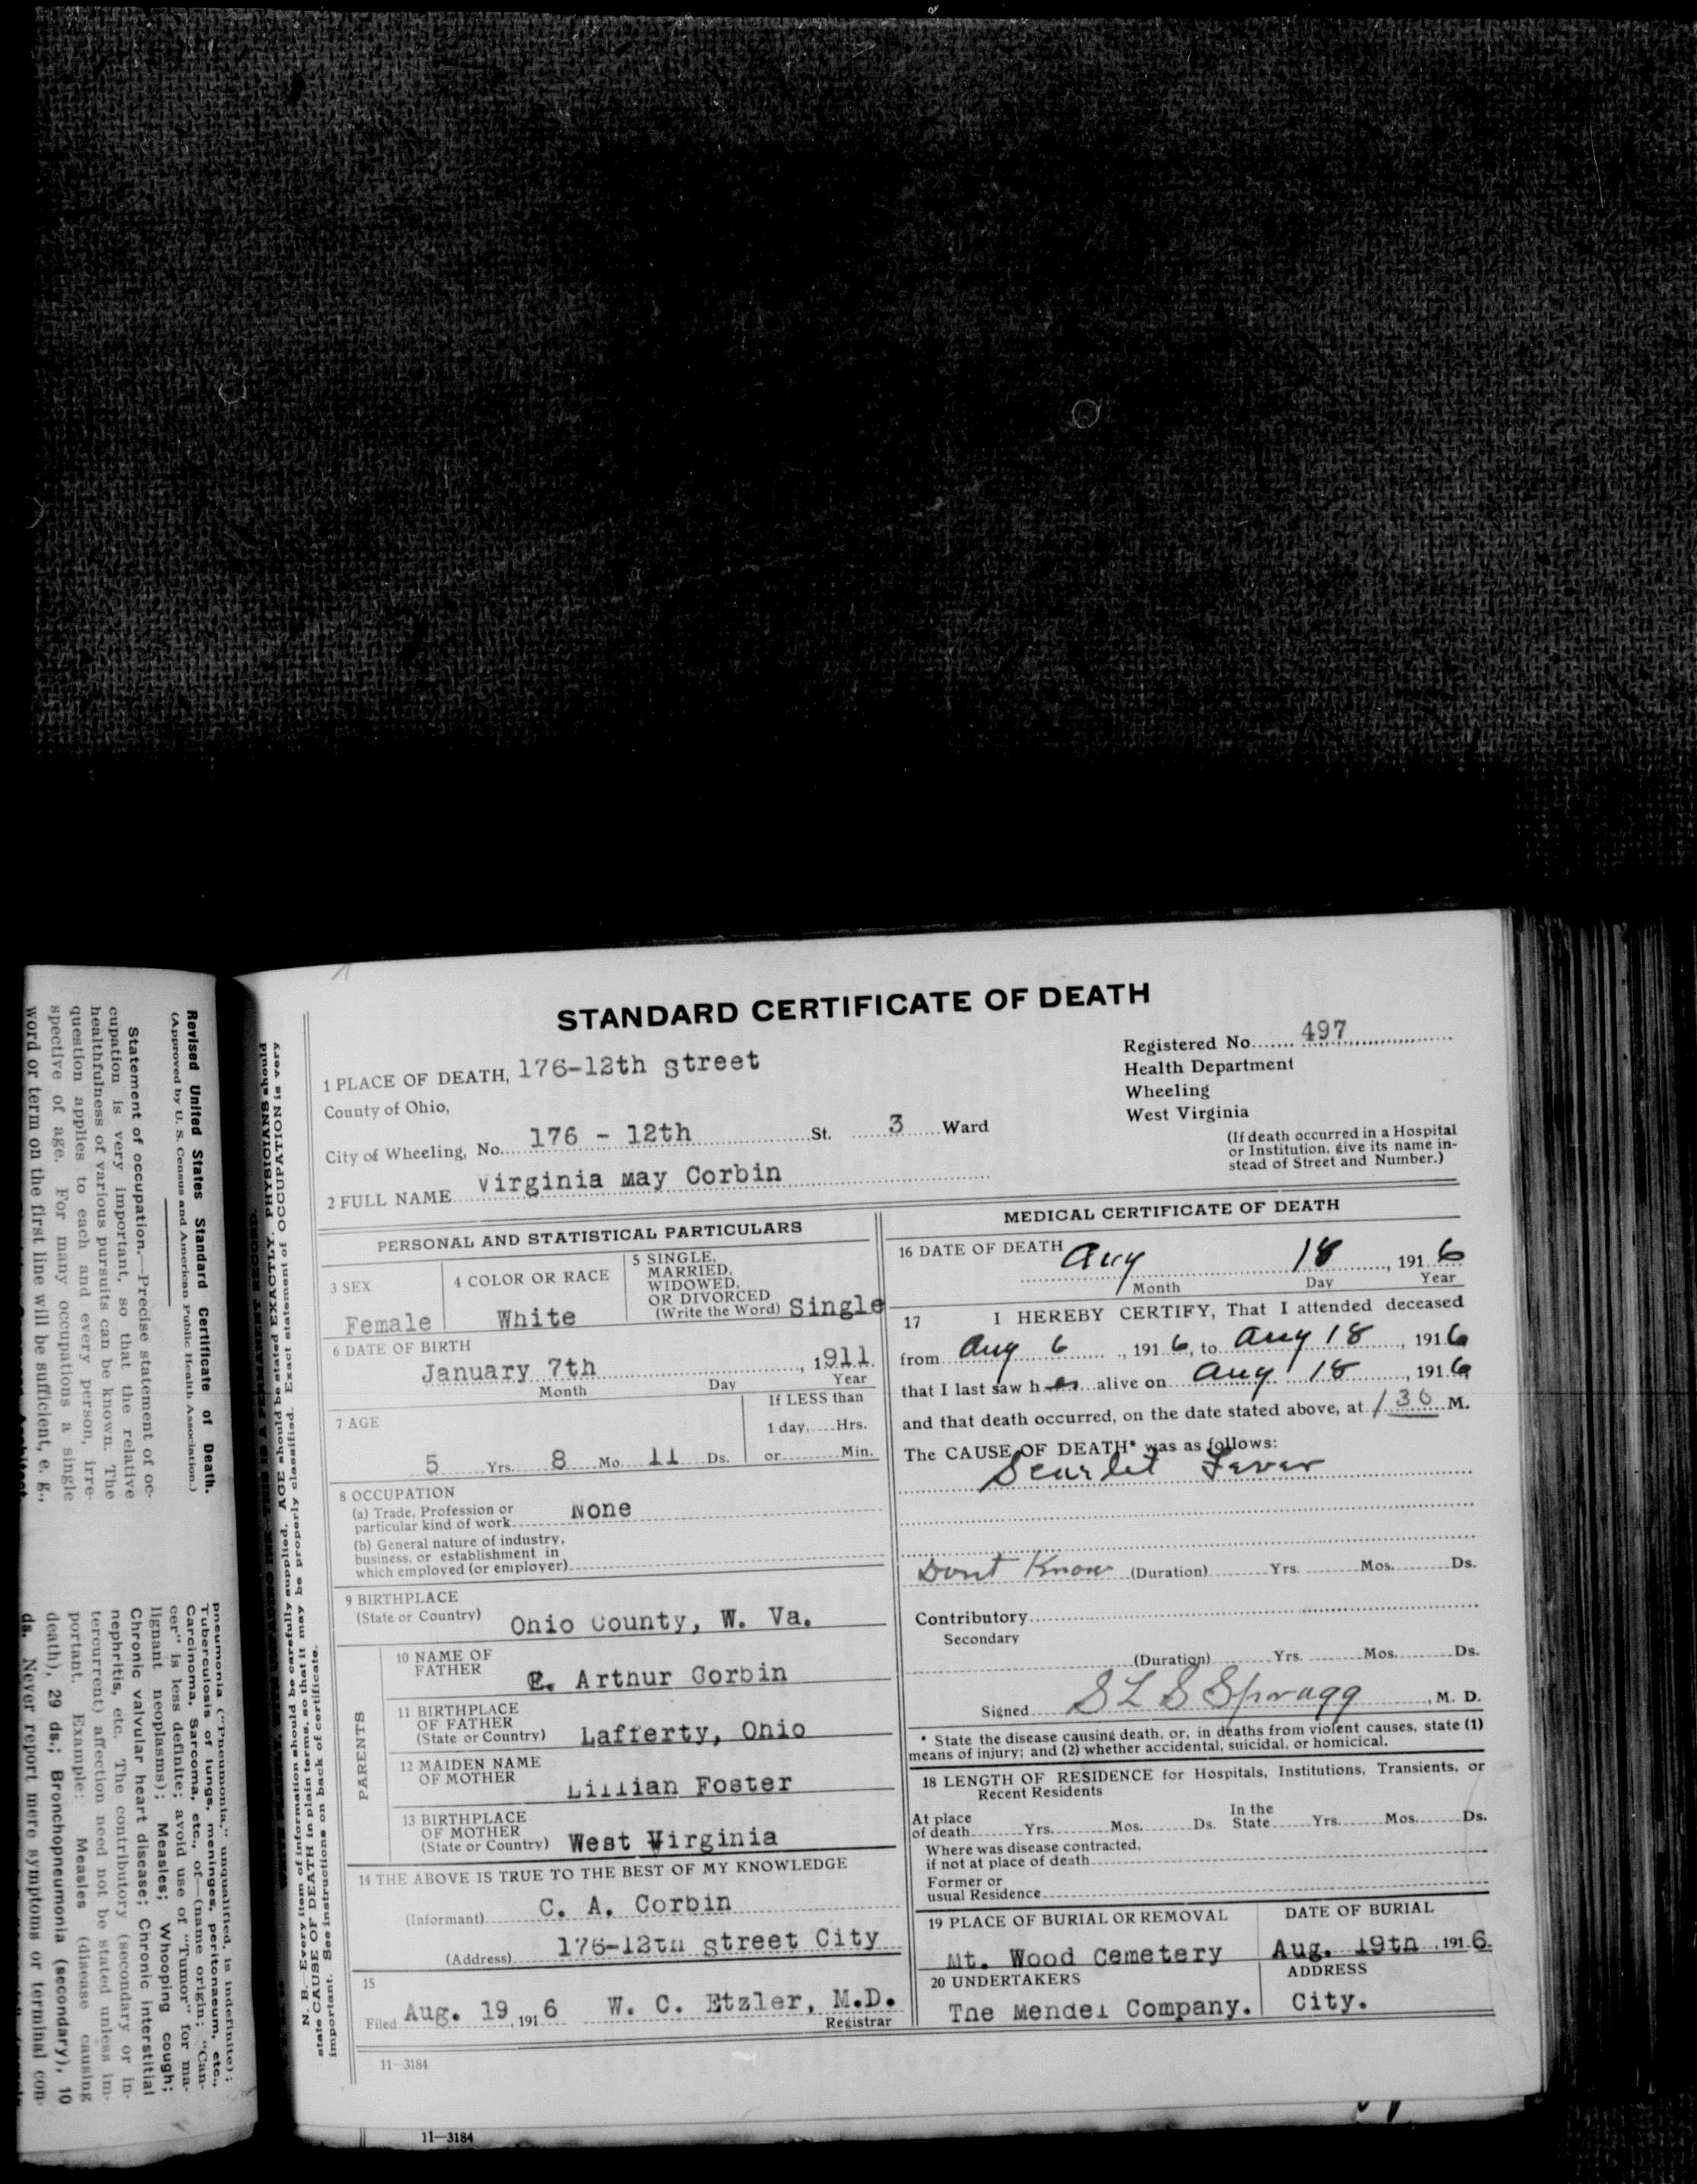 STANDARD CERTIFICATE OF DEATH
Registered No. 497
Health Department
Wheeling
West Virginia
(If death occurred in a Hospital
or Institution, give its name in-
stead of Street and Number.)
1 PLACE OF DEATH, 176-12th Street
County of Ohio,
City of Wheeling, No. 176 - 12th St. 3 Ward
2 FULL NAME Virginia May Corbin
PERSONAL AND STATISTICAL PARTICULARS
3 SEX
Female
4 COLOR OR RACE
White
5 SINGLE,
MARRIED,
WIDOWED,
OR DIVORCED
(Write the Word) Single
6 DATE OF BIRTH
January 7th, 1911
Month Day Year
7 AGE
5 Yrs. 8 Mo. 11 Ds.
If LESS than
1 day, Hrs.
or Min.
8 OCCUPATION
(a) Trade, Profession or
particular kind of work None
(b) General nature of industry,
business, or establishment in
which employed (or employer)
9 BIRTHPLACE
(State or Country) Ohio County, W. Va.
PARENTS
10 NAME OF
FATHER Arthur Corbin
11 BIRTHPLACE
OF FATHER
(State or Country) Lafferty, Ohio
12 MAIDEN NAME
OF MOTHER Lillian Foster
13 BIRTHPLACE
OF MOTHER
(State or Country) West Virginia
14 THE ABOVE IS TRUE TO THE BEST OF MY KNOWLEDGE
(Informant) C. A. Corbin
(Address) 176-12th Street City
15
Filed Aug. 19, 1916 W. C. Etzler, M.D.
Registrar
11-3184
MEDICAL CERTIFICATE OF DEATH
16 DATE OF DEATH Aug 18, 1916
Month Day Year
17 I HEREBY CERTIFY, That I attended deceased
from Aug 6, 1916, to Aug 18, 1916
that I last saw her alive on Aug 18, 1916
and that death occurred, on the date stated above, at 130 M.
The CAUSE OF DEATH* was as follows:
Scarlet Fever
Dont Know (Duration) Yrs. Mos. Ds.
Contributory
Secondary
(Duration) Yrs. Mos. Ds.
Signed S L S Spragg, M. D.
* State the disease causing death, or, in deaths from violent causes, state (1)
means of injury; and (2) whether accidental, suicidal, or homicical.
18 LENGTH OF RESIDENCE for Hospitals, Institutions, Transients, or
Recent Residents
At place
of death Yrs. Mos. Ds.
In the
State Yrs. Mos. Ds.
Where was disease contracted,
if not at place of death
Former or
usual Residence
19 PLACE OF BURIAL OR REMOVAL
Mt. Wood Cemetery
DATE OF BURIAL
Aug. 19th, 1916.
20 UNDERTAKERS
The Mendel Company.
ADDRESS
City.
11-3184
N. B.—Every item of information should be carefully supplied. AGE should be stated EXACTLY. PHYSICIANS should
state CAUSE OF DEATH in plain terms, so that it may be properly classified. Exact statement of OCCUPATION is very
important. See instructions on back of certificate.
Revised United States Standard Certificate of Death.
(Approved by U. S. Census and American Public Health Association.)
Statement of occupation.—Precise statement of oc-
cupation is very important, so that the relative
healthfulness of various pursuits can be known. The
question applies to each and every person, irre-
spective of age. For many occupations a single
word or term on the first line will be sufficient, e. g.,
pneumonia ("Pneumonia," unqualified, is indefinite);
Tuberculosis of lungs, meninges, peritonaeum, etc.,
Carcinoma, Sarcoma, etc., of—(name origin; "Can-
cer" is less definite; avoid use of "Tumor" for ma-
lignant neoplasms); Measles; Whooping cough;
Chronic valvular heart disease; Chronic interstitial
nephritis, etc. The contributory (secondary or in-
tercurrent) affection need not be stated unless im-
portant. Example: Measles (disease causing
death), 29 ds.; Bronchopneumonia (secondary), 10
ds. Never report mere symptoms or terminal con-